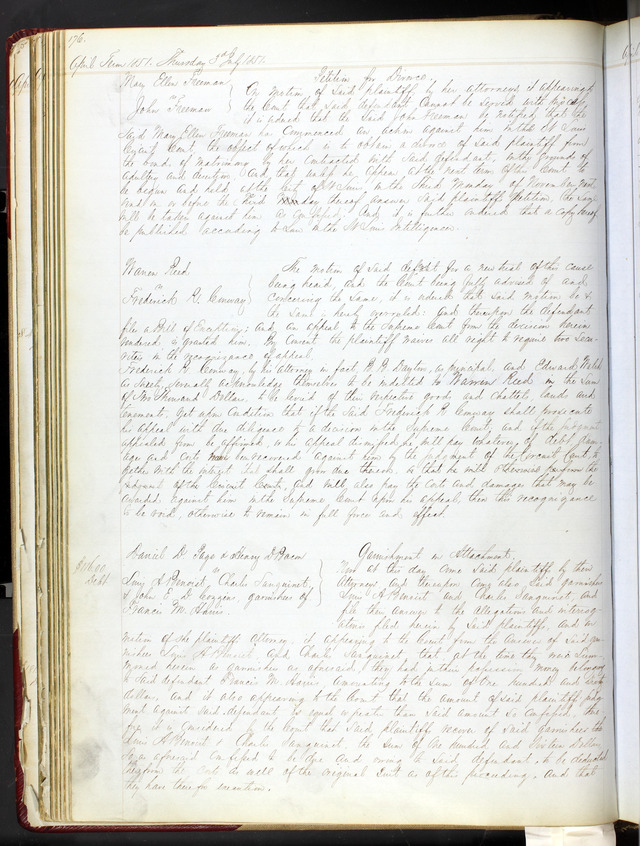 176.
April Term 1851. Thursday 3d July 1851.
Mary Ellen Freeman
vs
John Freeman
Petition for Divorce.
On motion of said plaintiff by her attorney, it appearing to
the Court that said defendant cannot be served with process,
it is ordered that the said John Freeman be notified that the
said Mary Ellen Freeman has commenced an action against him in the St Louis
Circuit Court, the object of which is to obtain a divorce of said plaintiff from
the bonds of matrimony by her contracted with said defendant, on the grounds of
adultery and desertion, and that unless he appear, at the next term of this Court to
be begun and held at the City of St Louis, on the third Monday of November next
and on or before the third day thereof answer said plaintiffs Petition, the same
will be taken against him as confessed. And it is further ordered that a copy hereof
be published according to law in the St Louis Intelligencer.
Warren Reed
vs
Frederick R. Conway
The motion of said defdt for a new trial of this cause
being heard, and the Court being fully advised of and
concerning the same, it is ordered that said motion be &
the same is hereby overruled: and thereupon the defendant
files a Bill of Exceptions; and, an appeal to the Supreme Court from the decision herein
rendered is granted him. By consent the plaintiff waives all right to require two secu-
rities in the recognizance of appeal.
Frederick R. Conway, by his attorney in fact, B. F. Dayton, as principal, and Edward Walsh
as surety, severally acknowledge themselves to be indebted to Warren Reed in the sum
of Two Thousand Dollars, to be levied of their respective goods and chattels, lands and
tenements; Yet upon condition that if the said Frederick R. Conway shall prosecute
his appeal with due diligence to a decision in the Supreme Court, and if the judgment
appealed from be affirmed, or his appeal dismissed, he will pay whatever of debt, dam-
age and costs has been recovered against him by the judgment of the Circuit Court, to-
gether with the interest that shall grow due thereon, or that he will otherwise perform the
judgment of the Circuit Court, and will also pay the costs and damages that may be
awarded against him in the Supreme Court upon his appeal, then this recognizance
to be void, otherwise to remain in full force and effect.
Debt
Daniel D. Page & Henry D. Bacon
vs
Louis A Benoist, Charles Sanguinet,
& John E. D. Cozzens, garnishees of
Francis M. Harris.
Garnishment on Attachment.
Now at this day come said plaintiffs by their
Attorney and thereupon come also said garnishees
Louis A Benoist and Charles Sanguinet, and
file their answers to the allegations and interrog-
atories filed herein by said plaintiffs, and on
motion of the plaintiffs Attorney, it appearing to the Court from the answer of said gar-
nishees Louis A Benoist and Charles Sanguinet, that at the time they were sum-
moned herein as garnishees as aforesaid, they had in their possession money belonging
to said defendant Francis M. Harris, amounting to the sum of One Hundred and
dollars, and it also appearing to the Court that the amount of said plaintiffs judg-
ment against said defendant is equal or greater than said amount so confessed, there-
fore it is considered by the Court that said plaintiffs recover of said garnishees
Louis A Benoist & Charles Sanguinet, the sum of One Hundred and Dollars
so as aforesaid confessed to be due and owing to said defendant, to be
the costs as well of the original suit as of this proceeding, and that
they have therefor execution.